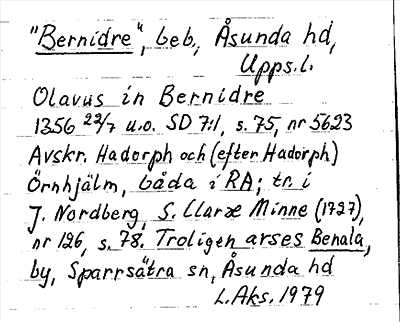 "Bernidre", beb., Åsunda hd,
Upps.l.
Olavus in Bernidre
1356 22/7 u.o. SD 7:1, s. 75, nr 5623
Avskr. Hadorph och (efter Hadorph)
Örnhjälm, båda i RA; tr. i
J. Nordberg, S. Claræ Minne (1727),
nr 126, s. 78. Troligen avses Benala,
by, Sparrsätra sn, Åsunda hd
L.Aks. 1979